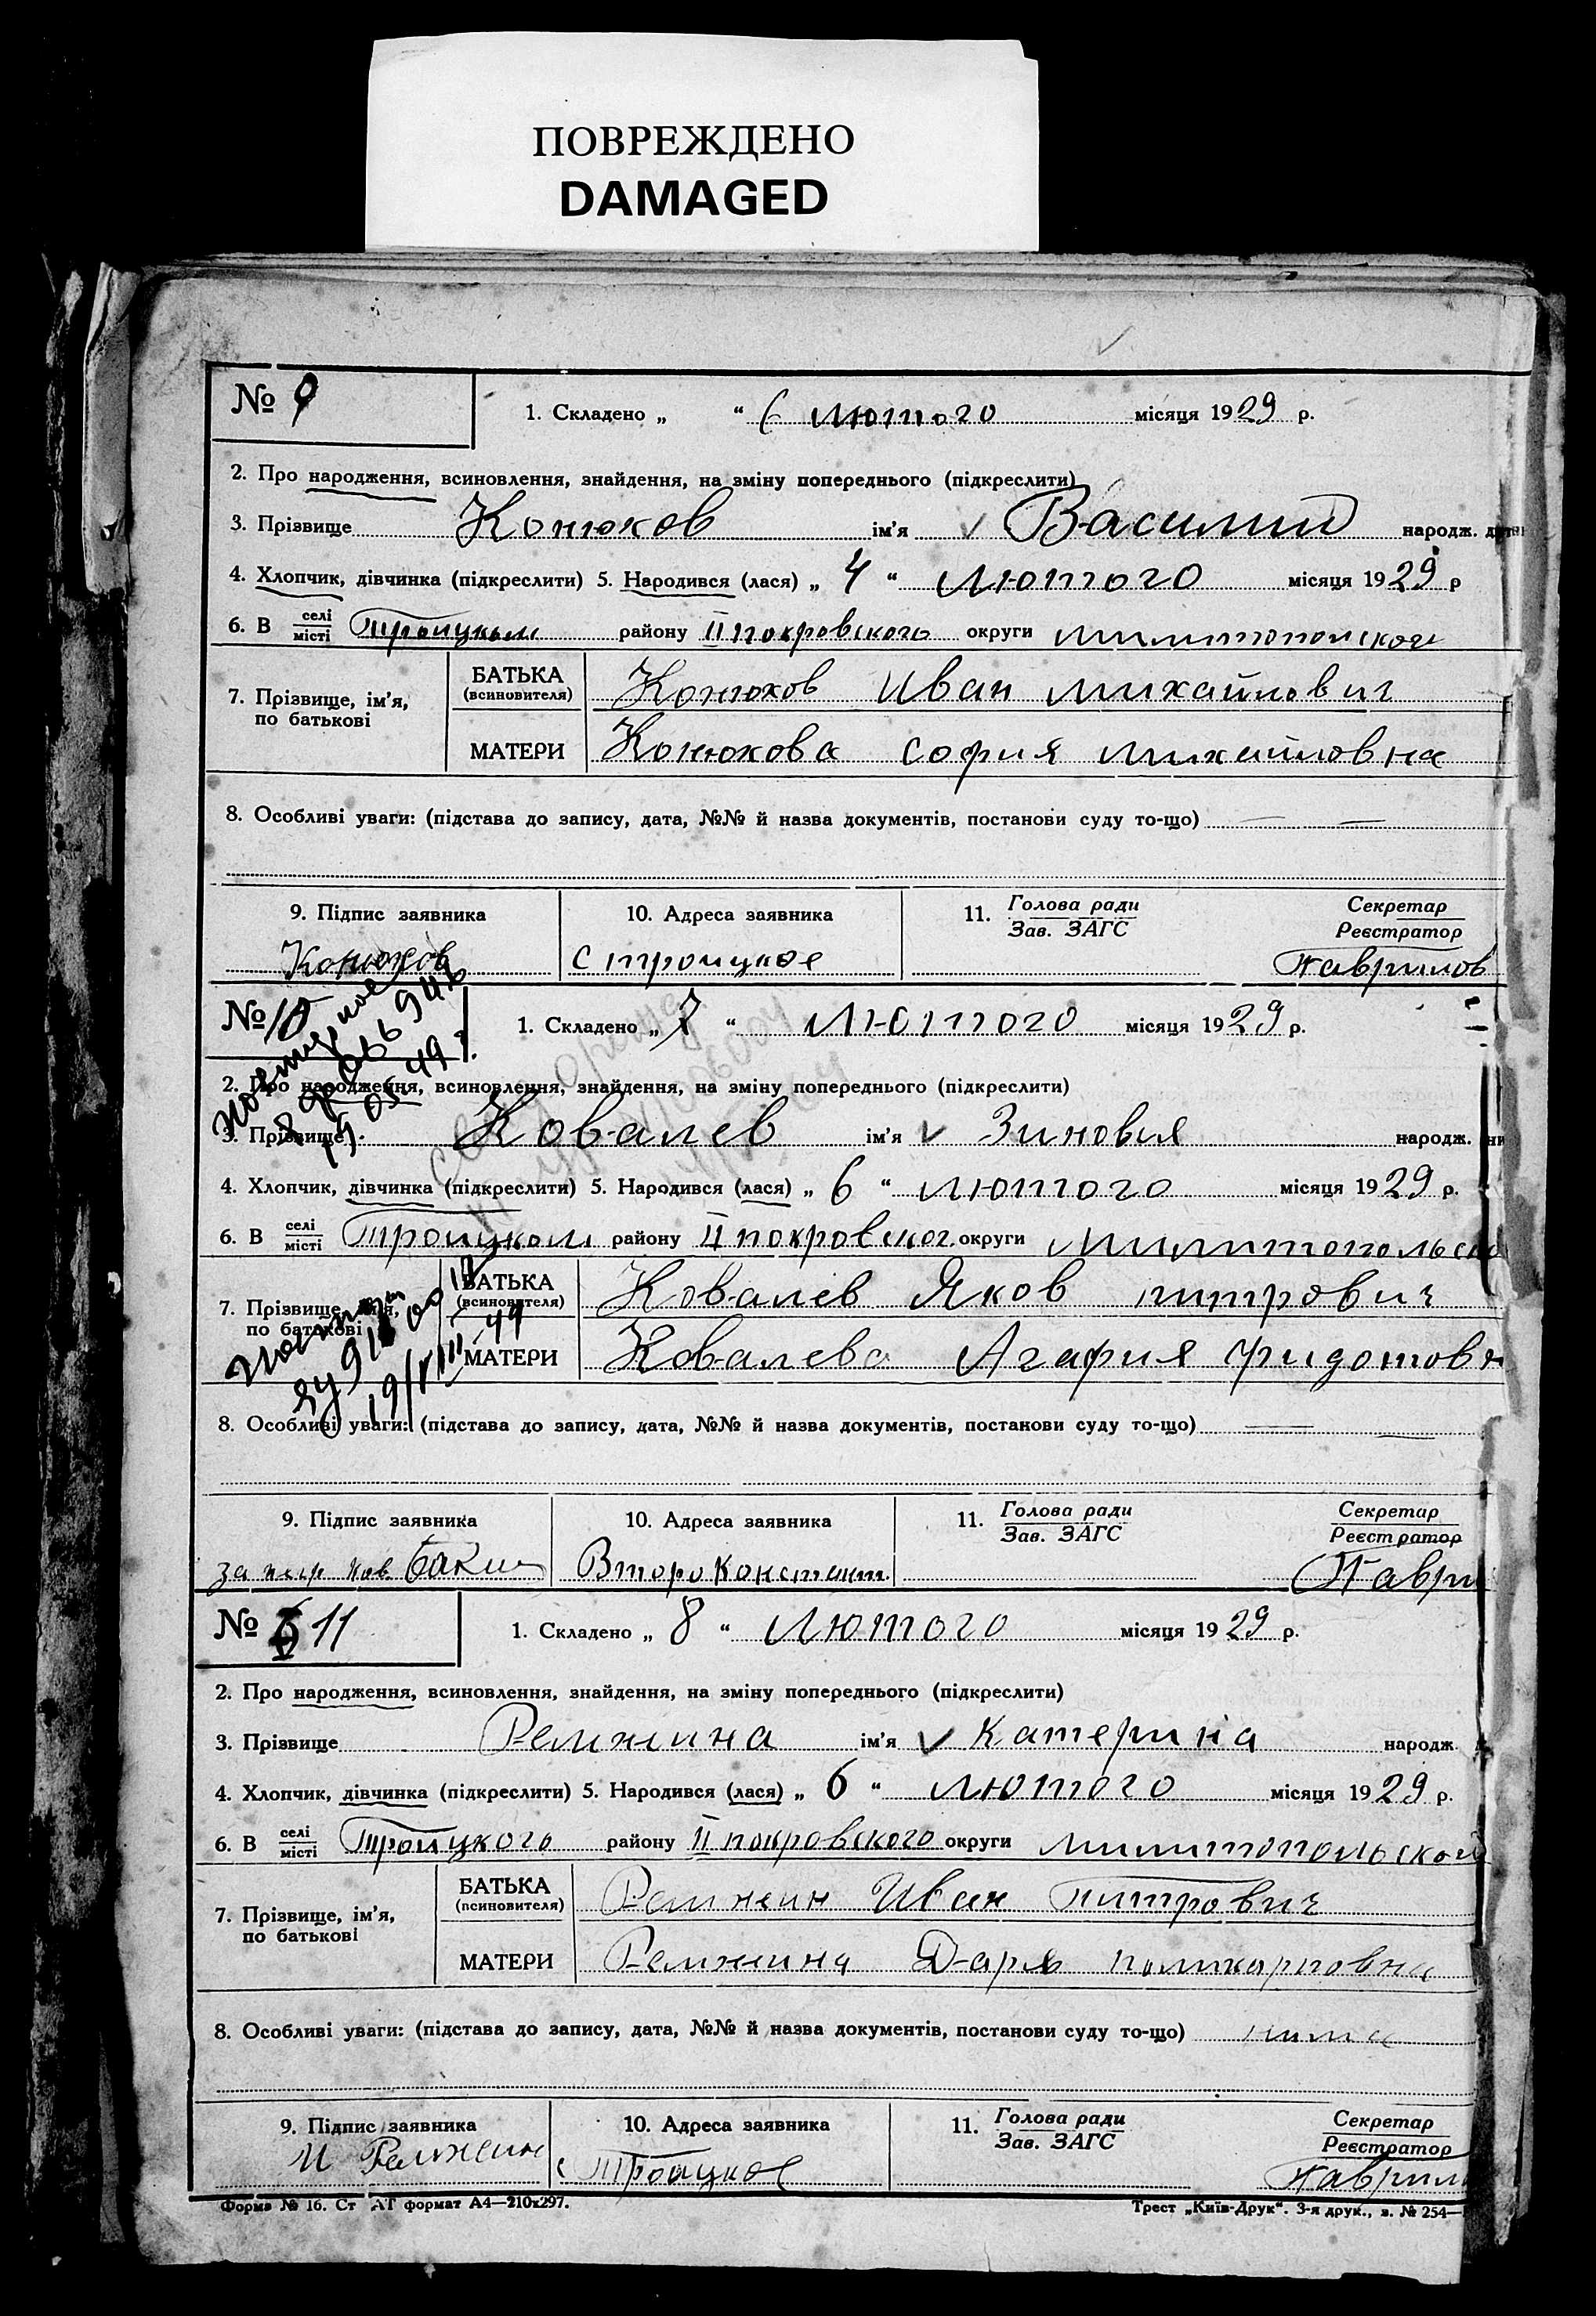 ПОВРЕЖДЕНО
DAMAGED
№ 9
1. Складено „ “ 6 лютого місяця 1929 р.
2. Про народження, всиновлення, знайдення, на зміну попереднього (підкреслити)
3. Прізвище Конюхов ім'я Василий народж.
4. Хлопчик, дівчинка (підкреслити) 5. Народився (лася) „ 4 “ лютого місяця 1929 р
6. В селі місті Троицком району II покровского округи
7. Прізвище, ім'я, по батькові
БАТЬКА (всиновителя) Конюхов Иван Михайлович
МАТЕРИ Конюхова София Михайловна
8. Особливі уваги: (підстава до запису, дата, №№ й назва документів, постанови суду то-що) — —
9. Підпис заявника 10. Адреса заявника 11. Голова ради Зав. ЗАГС Секретар Реєстратор
Конюхов с троицкое Гаврилов
№ 10
1. Складено „ 7 “ Лютого місяця 1929 р.
2. Про народження, всиновлення, знайдення, на зміну попереднього (підкреслити)
3. Прізвище Ковалев ім'я Зиновья народж.
4. Хлопчик, дівчинка (підкреслити) 5. Народився (лася) „ 6 “ лютого місяця 1929 р.
6. В селі місті Троицком району II покровског округи
7. Прізвище, ім'я, по батькові
БАТЬКА (всиновителя) Ковалев Яков питрович
МАТЕРИ Ковалева Агафия
8. Особливі уваги: (підстава до запису, дата, №№ й назва документів, постанови суду то-що) — —
9. Підпис заявника 10. Адреса заявника 11. Голова ради Зав. ЗАГС Секретар Реєстратор
Гаври
№ 11
1. Складено „ 8 “ Лютого місяця 1929 р.
2. Про народження, всиновлення, знайдення, на зміну попереднього (підкреслити)
3. Прізвище Ремжина ім'я Катерина народж
4. Хлопчик, дівчинка (підкреслити) 5. Народився (лася) „ 6 “ лютого місяця 1929 р.
6. В селі місті Троицкого району II покровского округи милитопольской
7. Прізвище, ім'я, по батькові
БАТЬКА (всиновителя) Ремжин Иван питрович
МАТЕРИ Ремжина Даря поликарповна
8. Особливі уваги: (підстава до запису, дата, №№ й назва документів, постанови суду то-що) нима
9. Підпис заявника 10. Адреса заявника 11. Голова ради Зав. ЗАГС Секретар Реєстратор
И Ремжин с Троицкое Гаврил
Форма № 16. Ст АТ формат А4—210x297.
Трест „Київ-Друк“. 3-я друк., з. № 254—